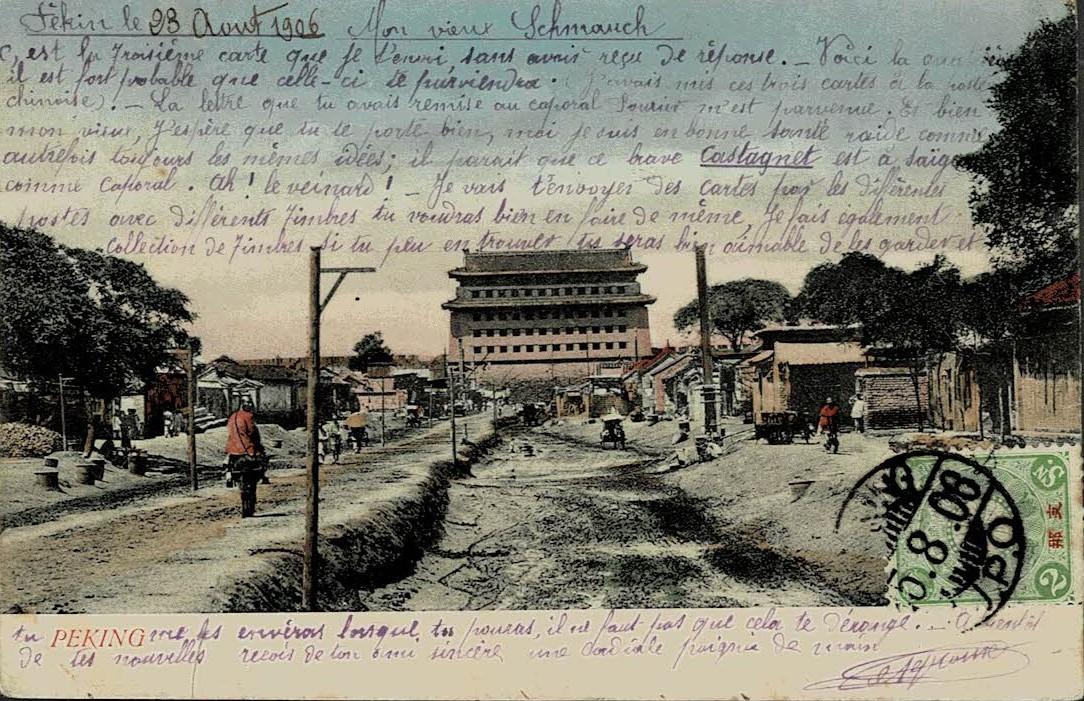 Pékin le 23 Aout 1906 Mon vieux Schmauch
C'est la troisième carte que je t'envoi, sans avoir reçu de réponse. — Voici la
il est fort probable que celle-ci te parviendra. J'avais mis ces trois cartes à la poste
chinoise). — La lettre que tu avais remise au caporal m'est parvenue. Eh bien
mon vieux, J'espère que tu te porte bien, moi je suis en bonne santé raide comme
autrefois toujours les mêmes idées; il parait que ce brave Castagnet est à Saïgo
comme Caporal. Ah! le veinard! — Je vais t'envoyer des cartes par les différentes
postes avec différents Timbres tu voudras bien en faire de même, Je fais également
collection de Timbres si tu peu en trouver tu seras bien aimable de les garder et
tu PEKING me les enverras lorsque tu pouras, il ne faut pas que cela te dérange. — A bientôt
de tes nouvelles reçois de ton ami sincère une cordiale poignée de main
5.8.06
I.J.P.O.
支那
2
SN
2